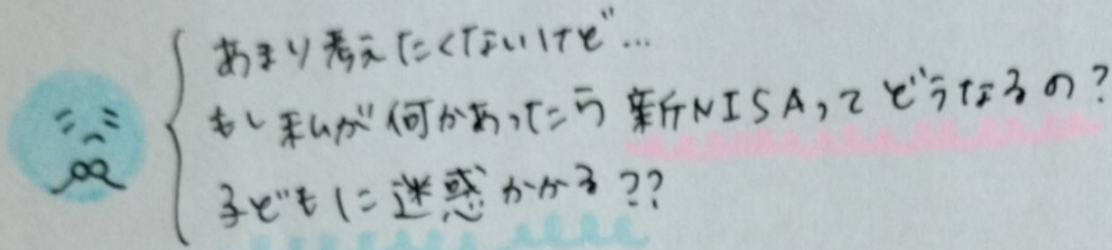 あまり考えたくないけど…
もし私が何かあったら 新NISAって どうなるの?
子どもに迷惑かかる??